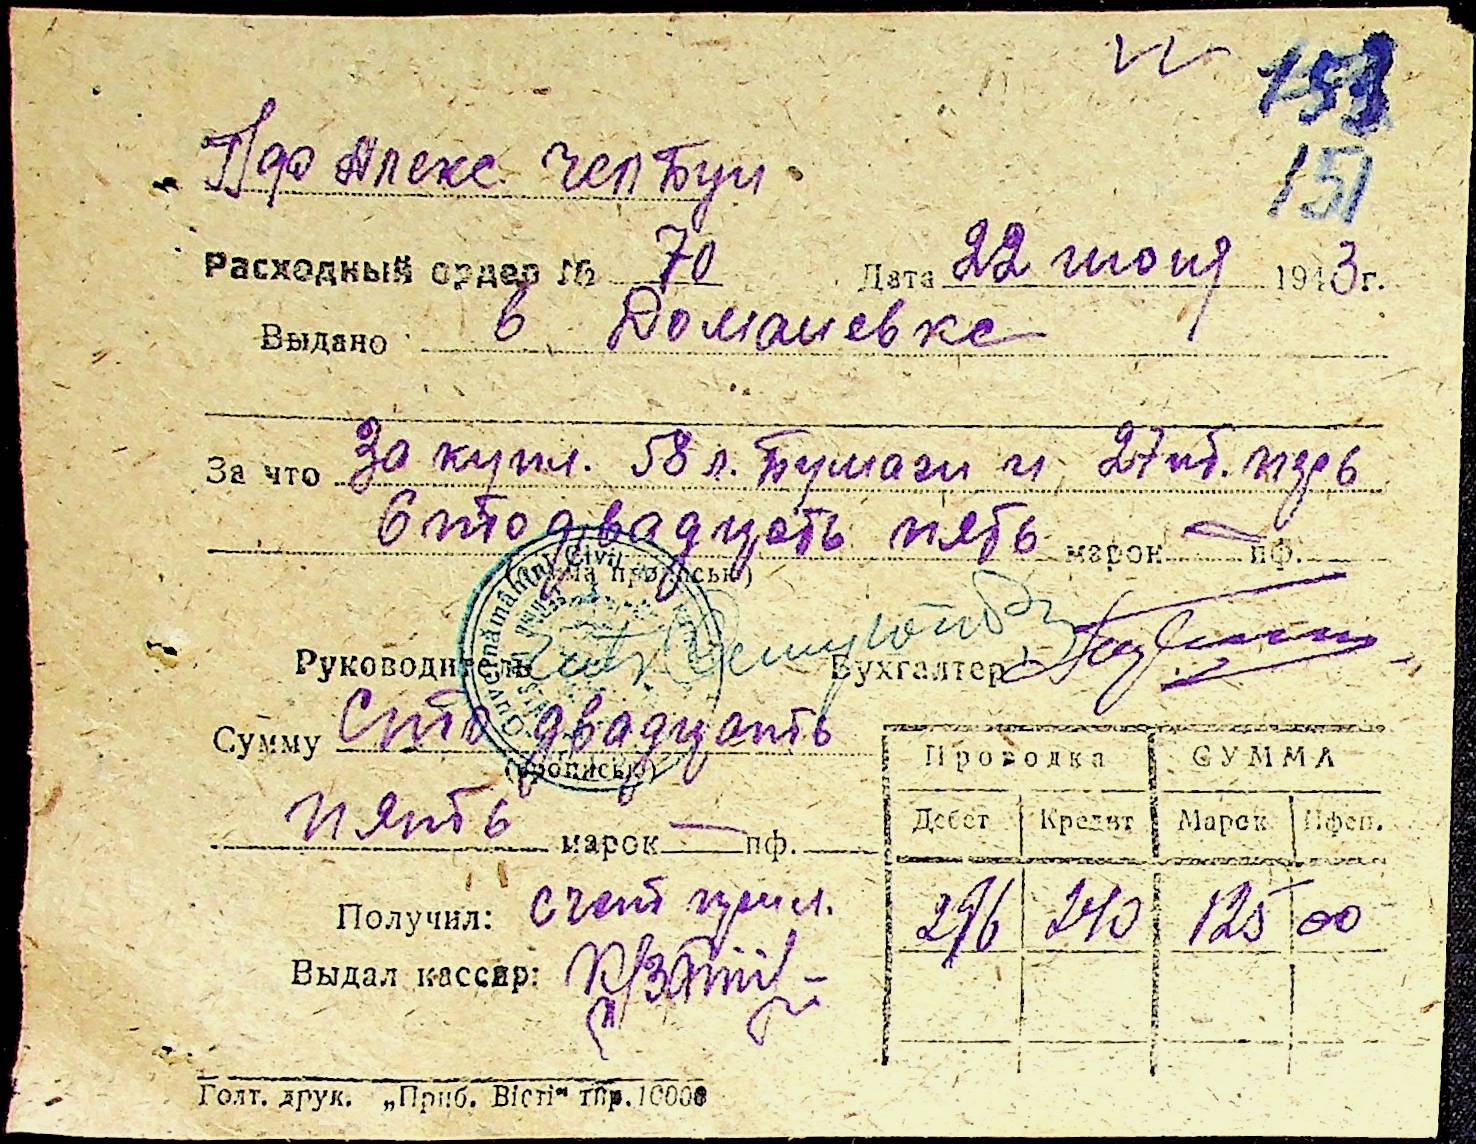 153
151
Пдо Алекс.
Расходный ордер № 70 Дата 22 июня 1943 г.
Выдано в Доманевке
За что За купл. 58 л. Бумаги и 27 шт.
Сто двадцать пять марок — пф.
Guvernământul Civil
Руководитель Бухгалтер
Сумму Сто двадцать
(прописью)
пять марок — пф.
Проводка СУММА
Дебет Кредит Марок Пфен.
296 240 125 00
Получил: счет прил.
Выдал кассир:
Голт. друк. „Приб. Вісті“ тир. 10000